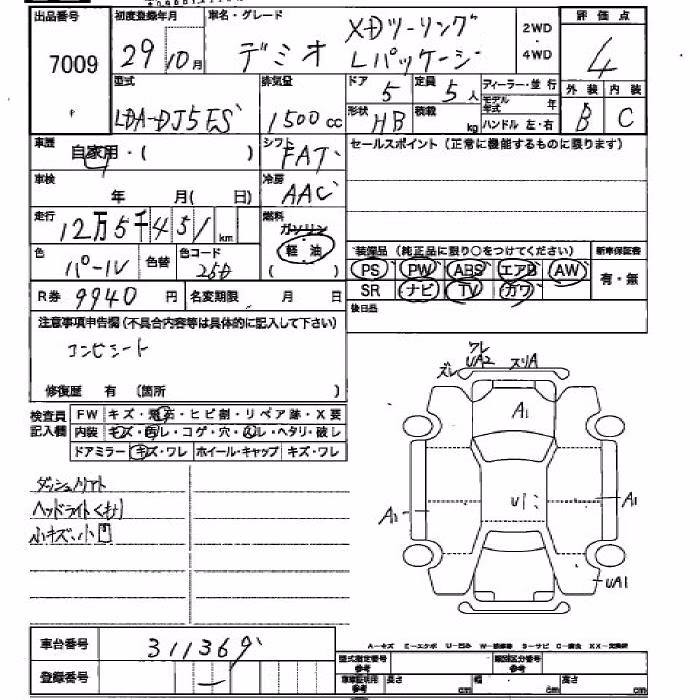 出品番号 初度登録年月 車名・グレード 評価点
7009 29 10月 デミオ XDツーリング Lパッケージ 2WD・4WD 4
型式 排気量 ドア 定員 ディーラー・並行 外装 内装
LDA-DJ5FS 1500cc 5 5人 モデル年式 年 B C
形状 積載 ハンドル 左・右
HB kg
車歴 自家用・( ) シフト FAT セールスポイント(正常に機能するものに限ります)
車検 年 月( 日) 冷房 AAC
走行 12万5千451km 燃料 ガソリン 軽油 ( )
色 パール 色替 色コード 25D
装備品(純正品に限り○をつけてください) 新車保証書
PS PW ABS エアB AW 有・無
SR ナビ TV カワ
R券 9940円 名変期限 月 日 後日品
注意事項申告欄(不具合内容等は具体的に記入して下さい)
コンビシート
修復歴 有 (箇所 )
検査員記入欄 FW キズ・飛石・ヒビ割・リペア跡・X要
内装 キズ・汚レ・コゲ・穴・スレ・ヘタリ・破レ
ドアミラー キズ・ワレ ホイール・キャップ キズ・ワレ
ズレ ワレ UA2 スリA
A1
U1
A1 A1
UA1
ダッシュリフト
ヘッドライトくもり
小キズ、小凹
車台番号 311369
登録番号
A-キズ E-エクボ U-凹み W-補修跡 S-サビ C-腐食 XX-交換済
型式指定番号 参考 類別区分番号 参考
車車証明用 参考 長さ cm 幅 cm 高さ cm